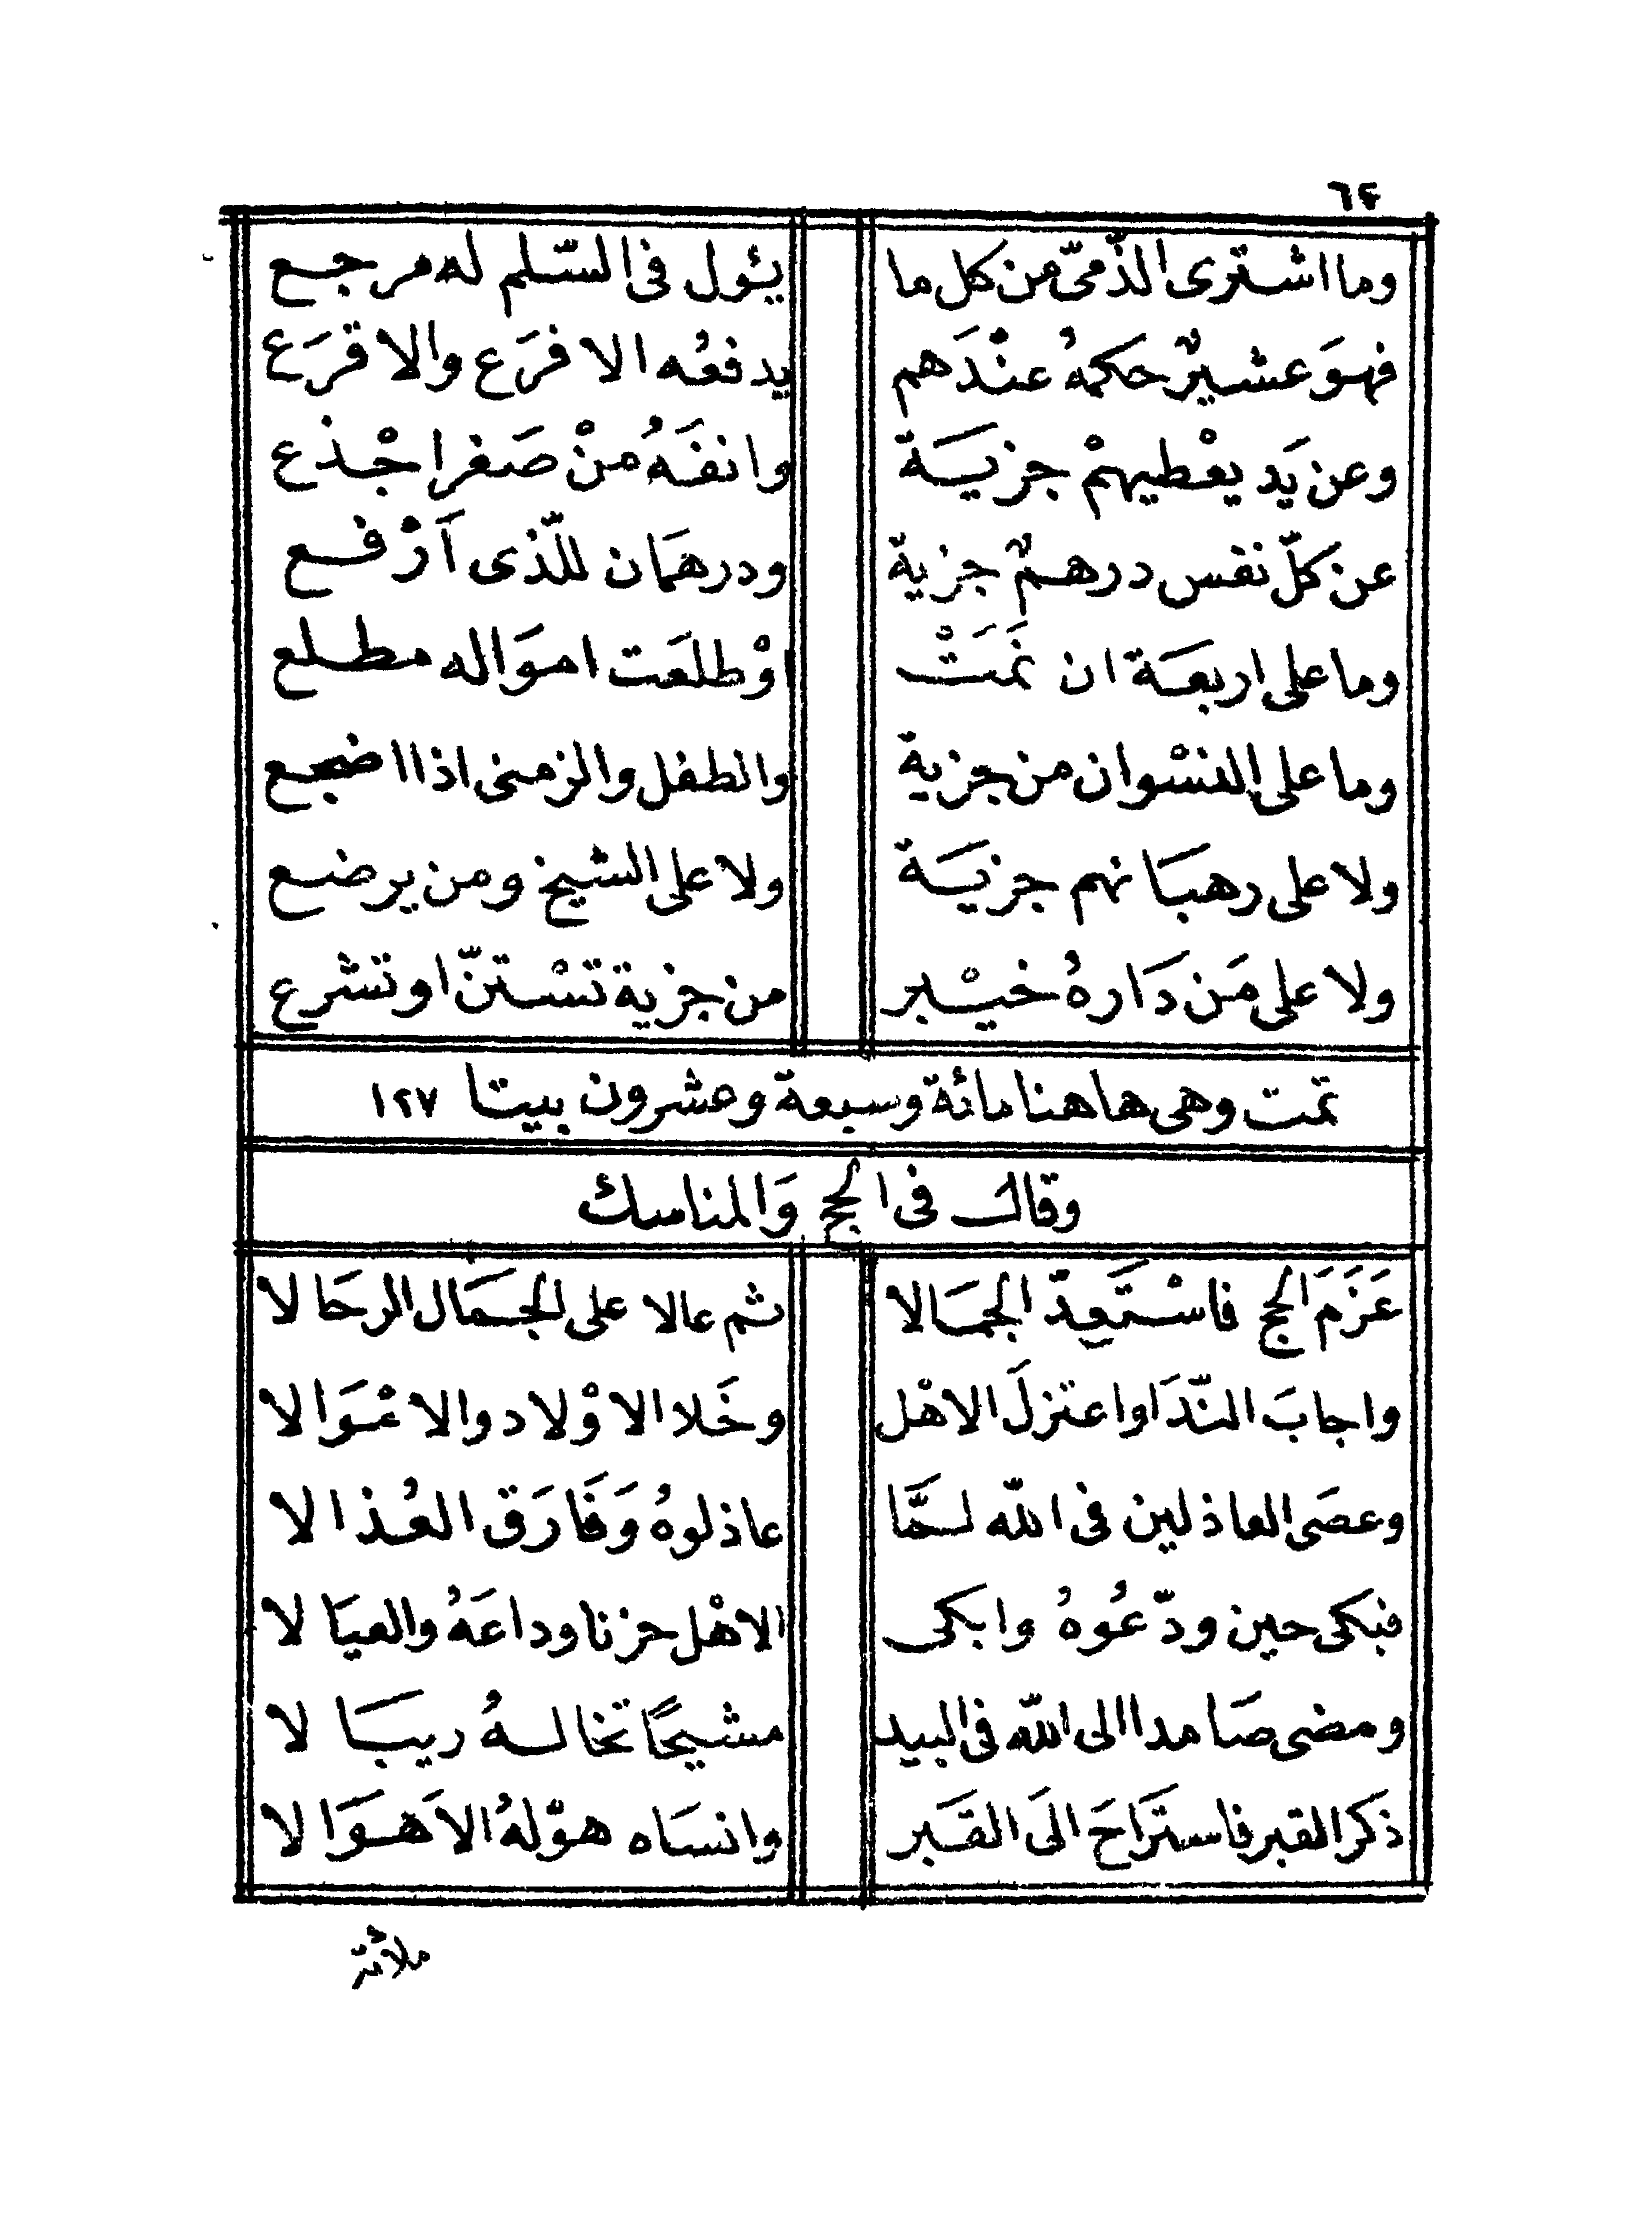 ٦٤
وما اشترى الذّمىّ من كل ما يئول فى السّلم له مرجع
فهوَ عشيرٌ حكمهُ عنْدَهم يدفعُه الا فرَع والا قرَع
وعن يَد يعْطيهمْ جزيَة وانفَهُ منْ صَغرا جْذع
عن كلّ نفس درهمٌ جزية ودرهمَان للّذى اَرْفع
وما على اربعَة ان نمَتَْ اوْ طلعَت اموَاله مطلع
وما على النسْوان من جزية والطفل والزمنى اذا اضجع
ولا على رهبَا نهم جزيَة ولا على الشيخ ومن يرضع
ولا على مَن دَارهُ خيْبر من جزية تسْتنّ او تشرع
تمت وهى هاهنا مائة وسبعة وعشرون بيتا ١٢٧
وقالَ فى الحج وَالمناسك
عَزَمَ الحج فاسْتَعِدّ الجمَالا ثم عالا على الجمَال الرحَا لا
واجابَ النّدَا واعتزلَ الاهْل وخَلا الاوْلاد والا عْوَا لا
وعصَى العاذلين فى اللّه لمَّا عاذلوهُ وَفَارَق العُذا لا
فبكى حين ودّعُوهُ وابكَى الاهْل حزنا وداعَهُ والعيَا لا
ومضى صَامدا الى اللّه فى البيد مشيحًا تخالهُ ريبَا لا
ذكر القبر فاستَرَاحَ الىَ القَبر وانسَاه هوْلهُ الاَهوَا لا
ملائة